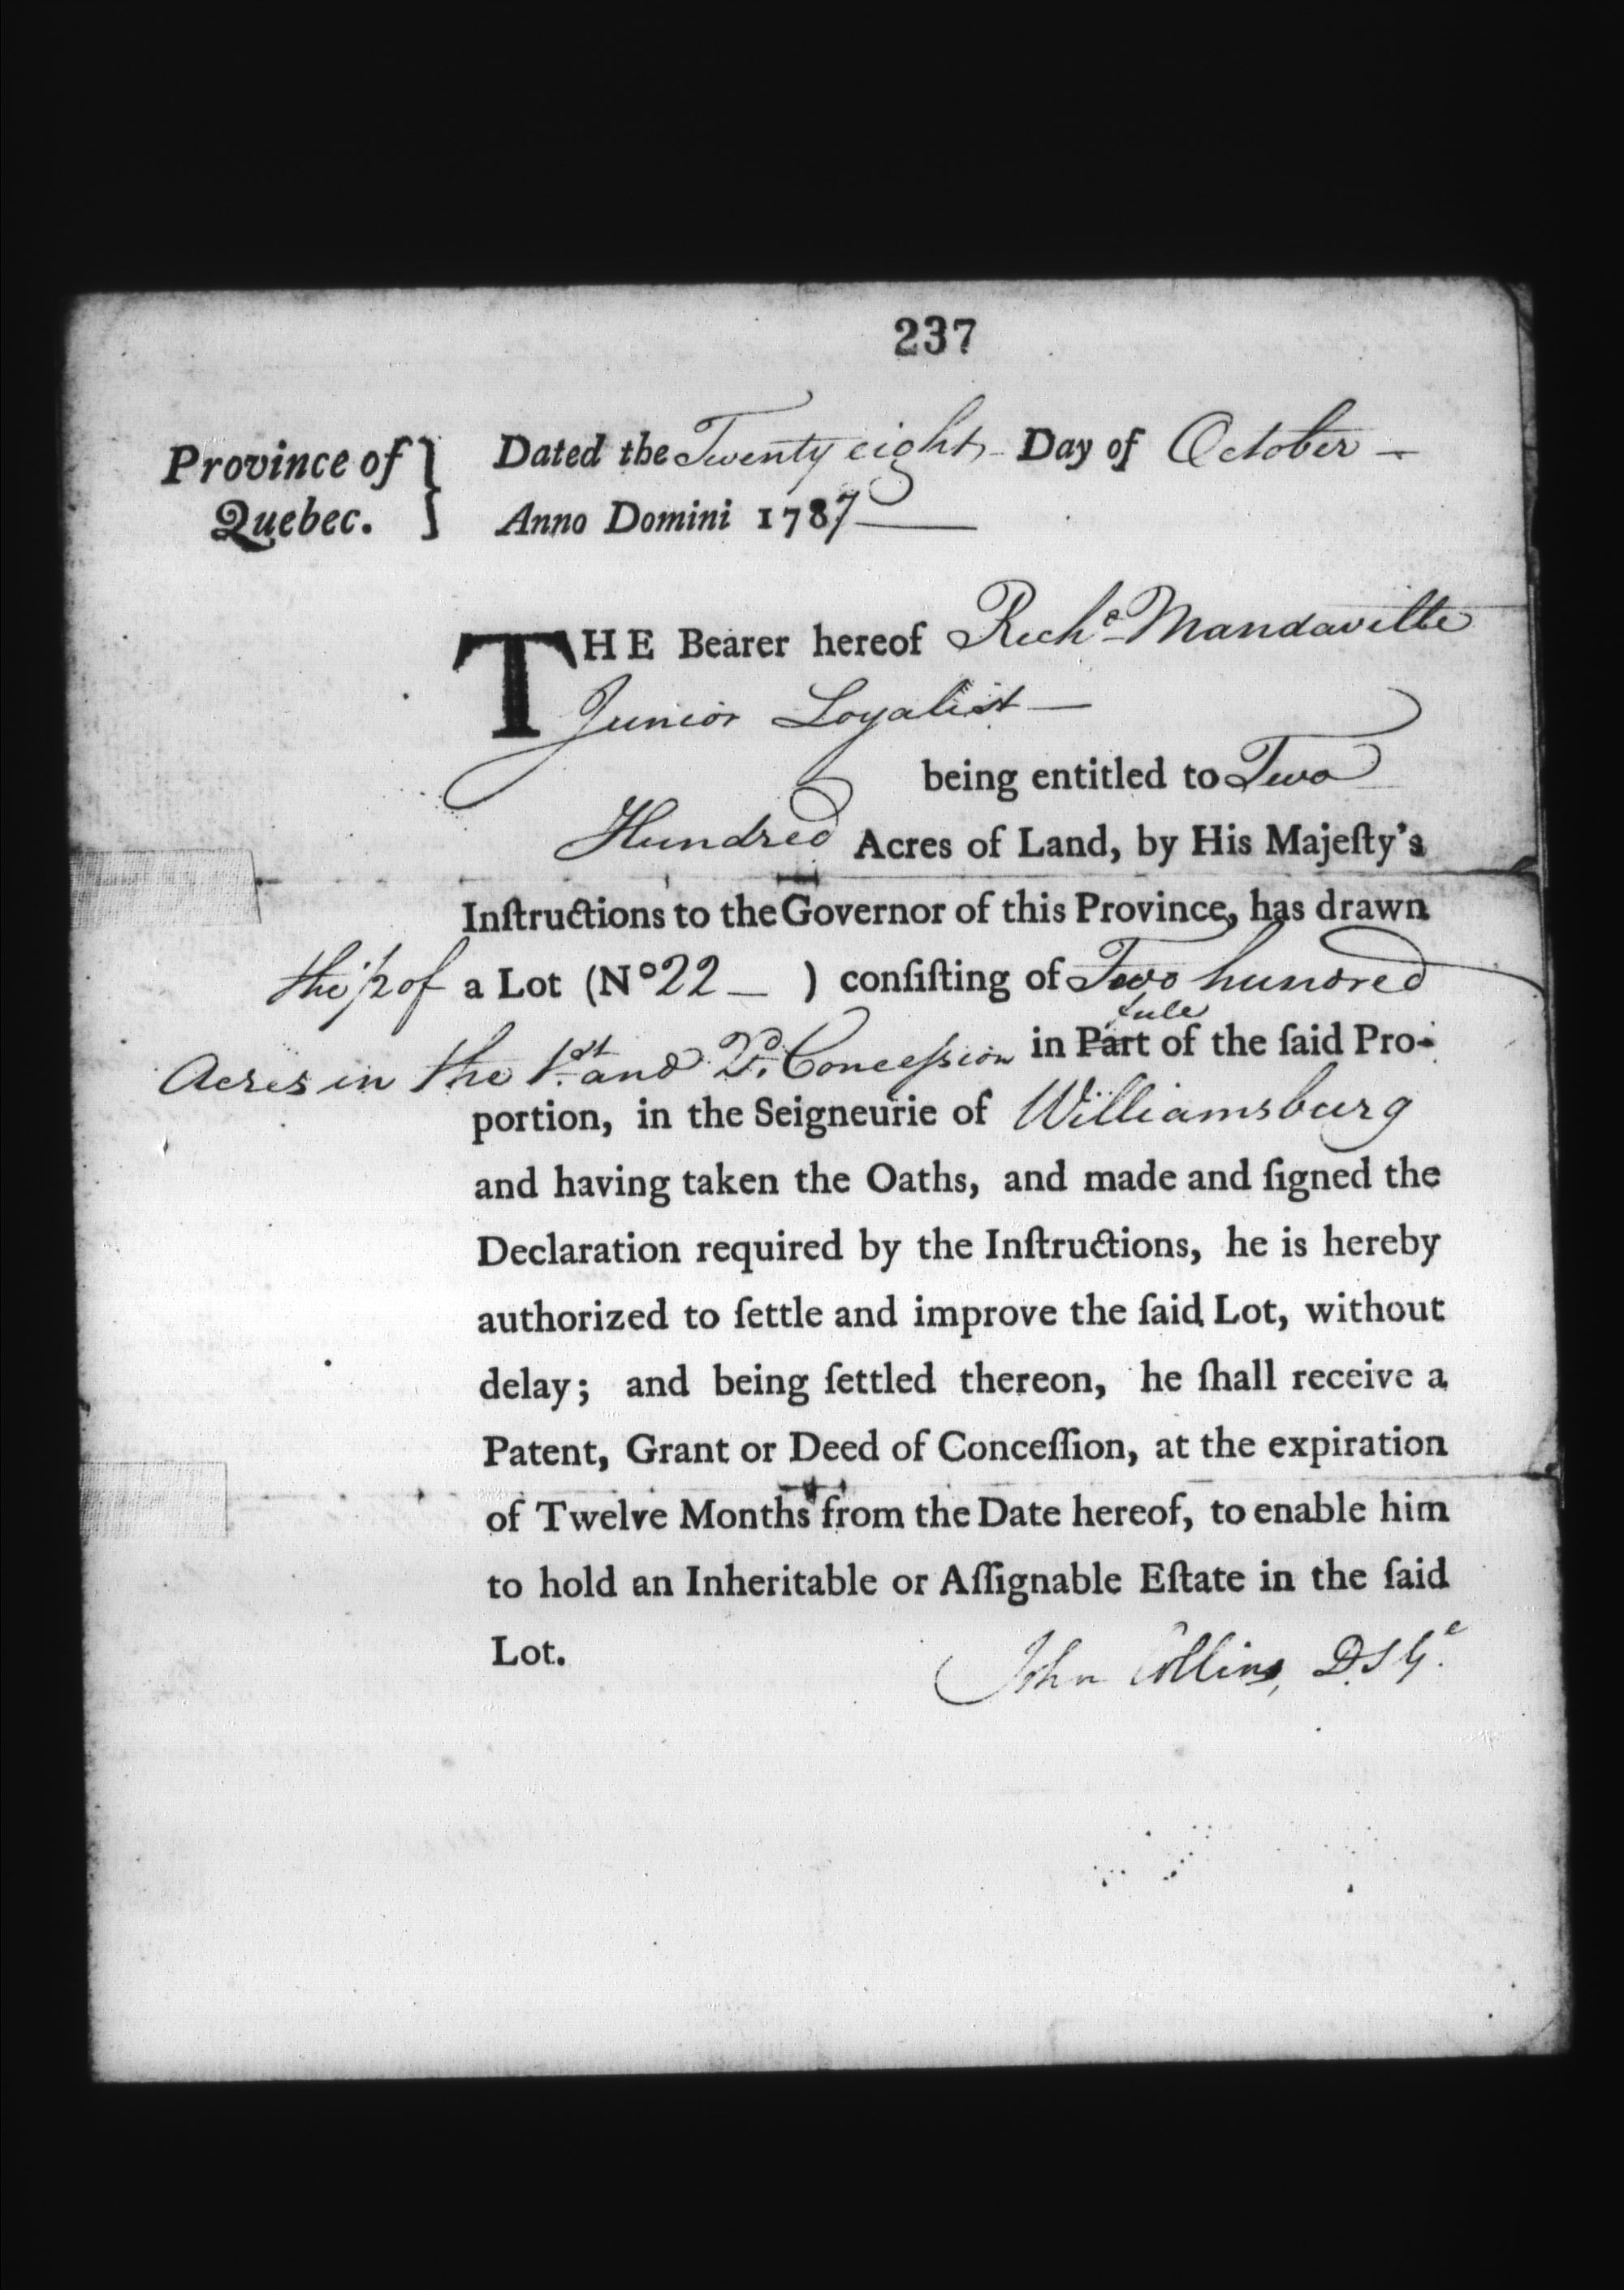 237
Province of Quebec. } Dated the Twenty eight Day of October
Anno Domini 1787
THE Bearer hereof Rich^d Mandaville
Junior Loyalist
being entitled to Two
Hundred Acres of Land, by His Majeſty's
Inſtructions to the Governor of this Province, has drawn
the ½ of a Lot (N° 22 ) conſiſting of Two hundred
Acres in the 1st and 2d. Conceſsion in Part full of the ſaid Pro-
portion, in the Seigneurie of Williamsburg
and having taken the Oaths, and made and ſigned the
Declaration required by the Inſtructions, he is hereby
authorized to ſettle and improve the ſaid Lot, without
delay; and being ſettled thereon, he ſhall receive a
Patent, Grant or Deed of Conceſſion, at the expiration
of Twelve Months from the Date hereof, to enable him
to hold an Inheritable or Aſſignable Eſtate in the ſaid
Lot.
John Collins, D.S.G^l.